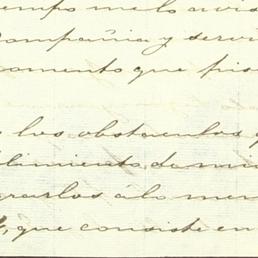 empo me lo avis
ompañia y servi
omento que pis
los obstaculos q
limiento de mi
rarlos á lo men
que consiste en